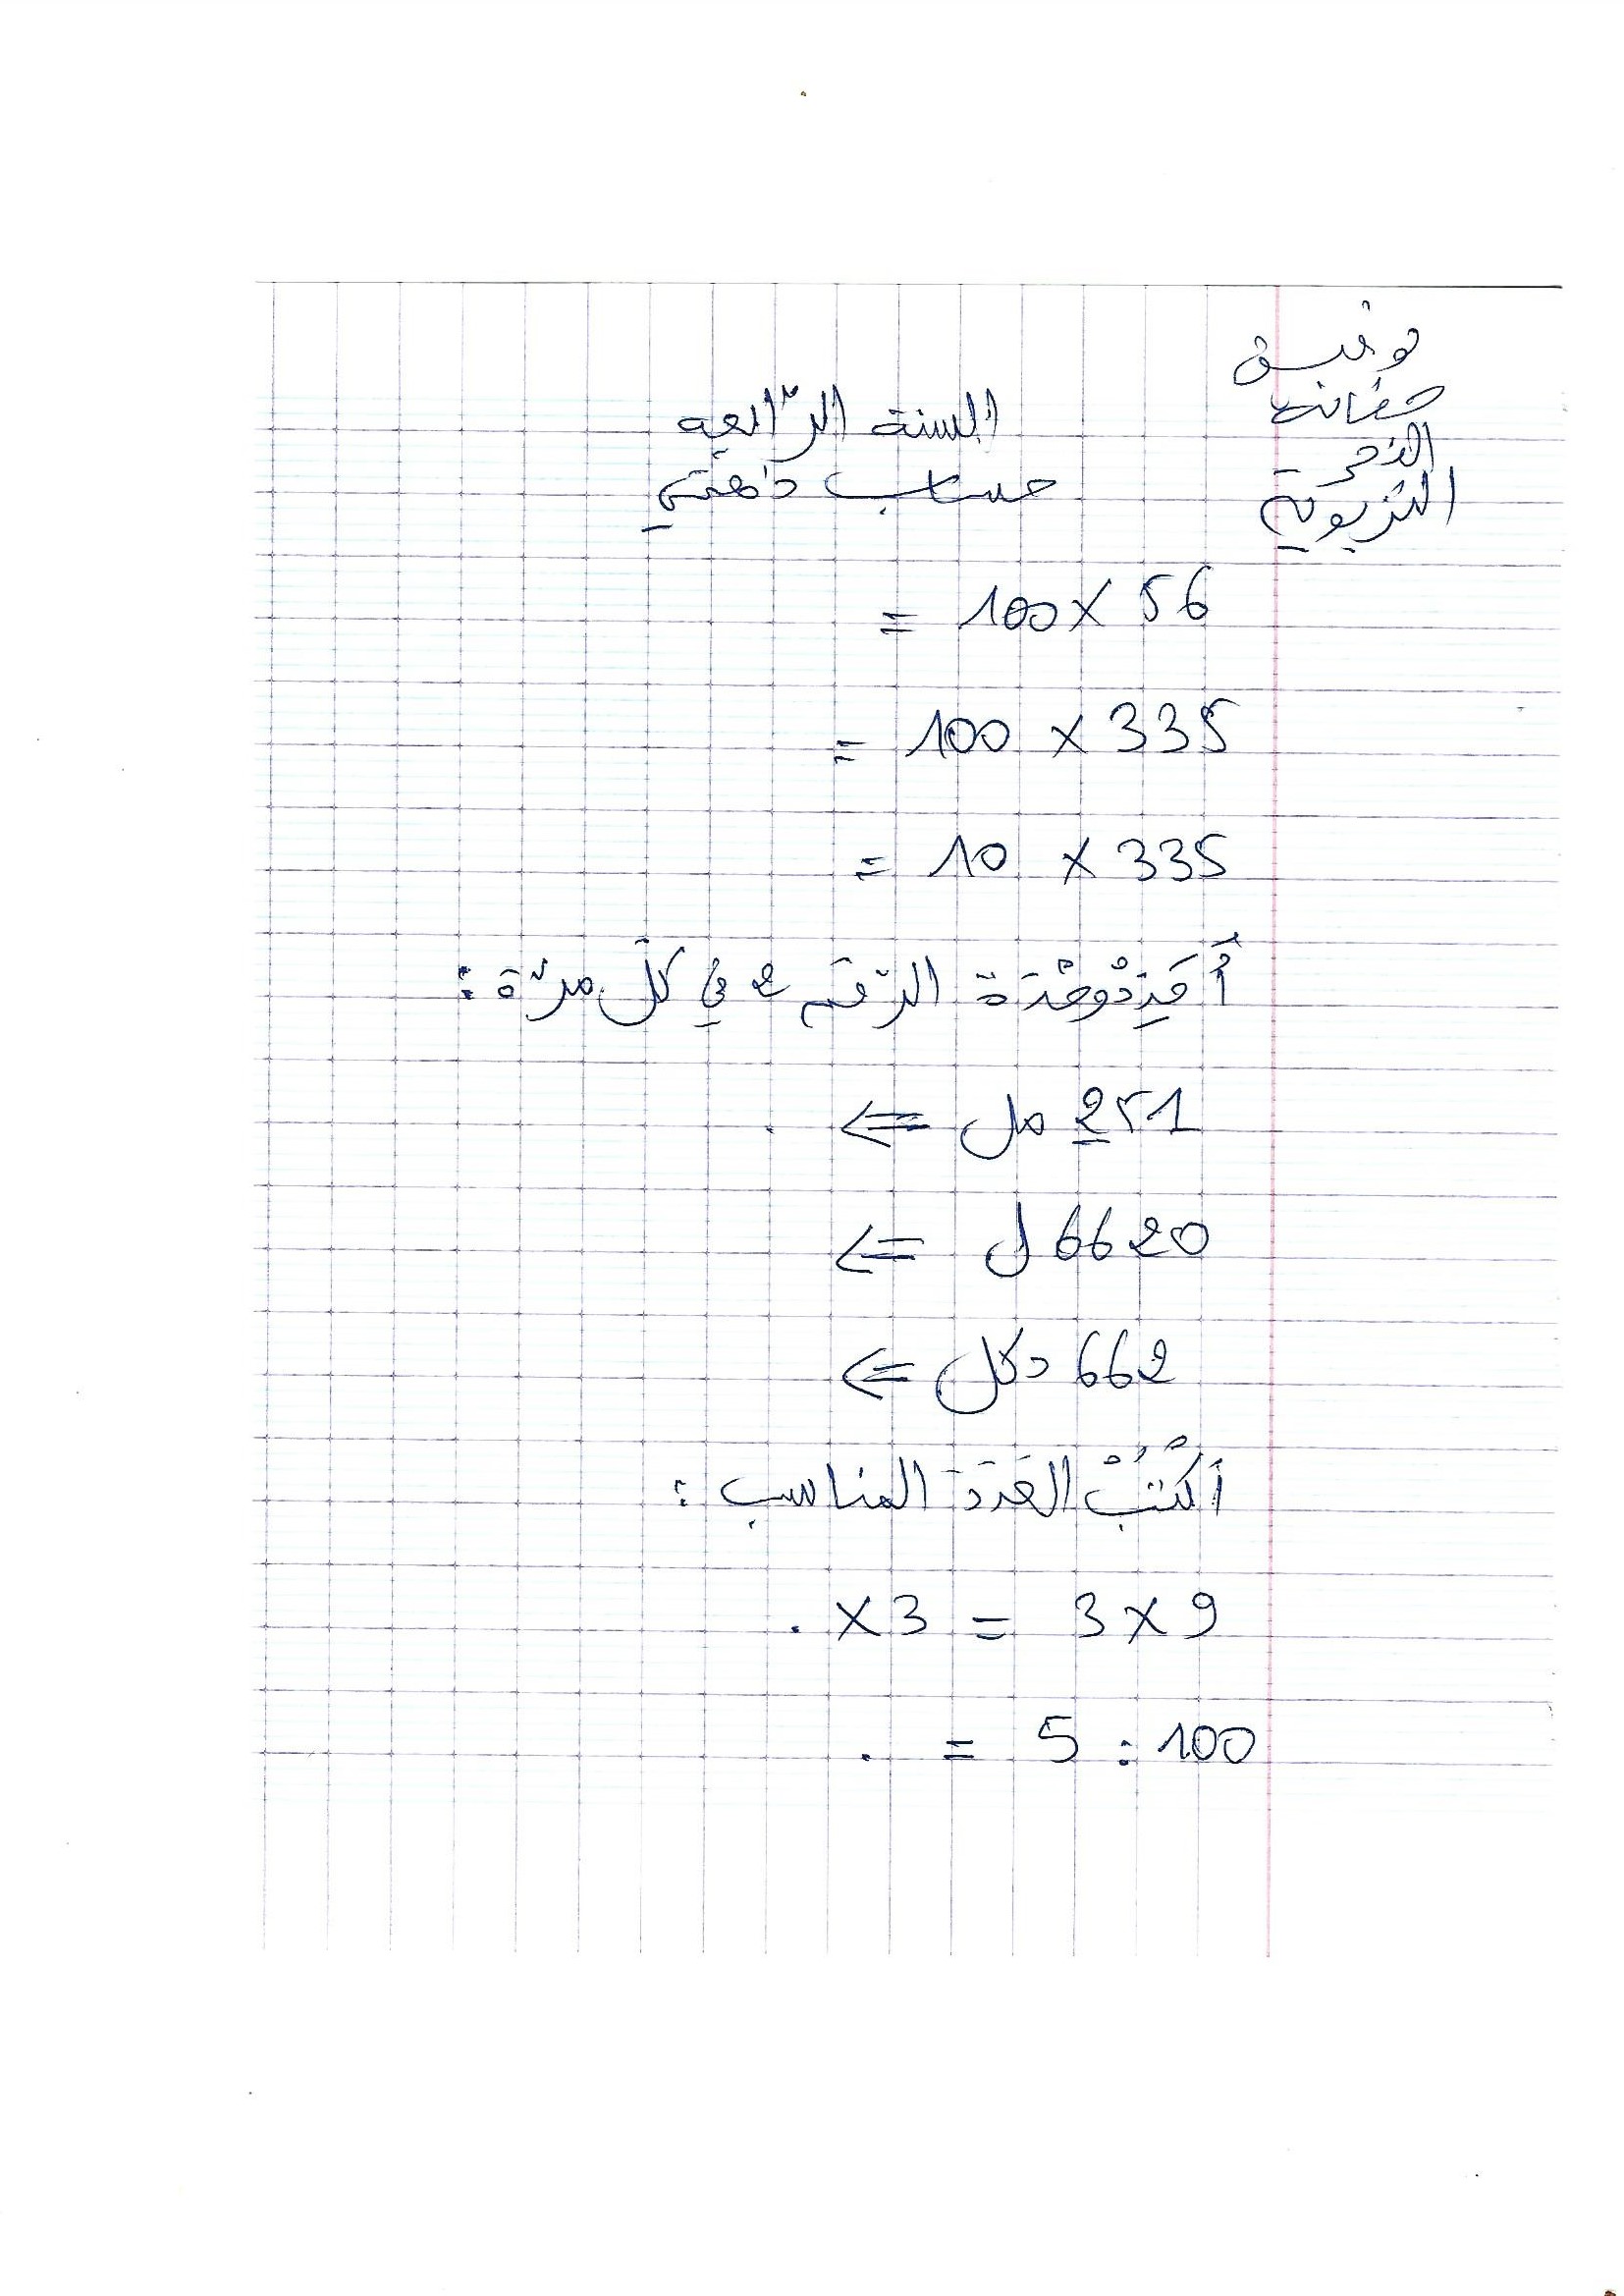 توفيق
حقائب
التربوية
السنة الرّابعة
حساب ذهني
56 × 100 =
335 × 100 =
335 × 10 =
أُحَدِّدُ وِحْدَةَ الرّقم 2 في كلّ مرّة :
251 مل ⇐ .
6620 ل ⇐
662 دكل ⇐
أَكْتُبُ العَدَدَ المناسب :
9 × 3 = 3 × .
100 : 5 = .